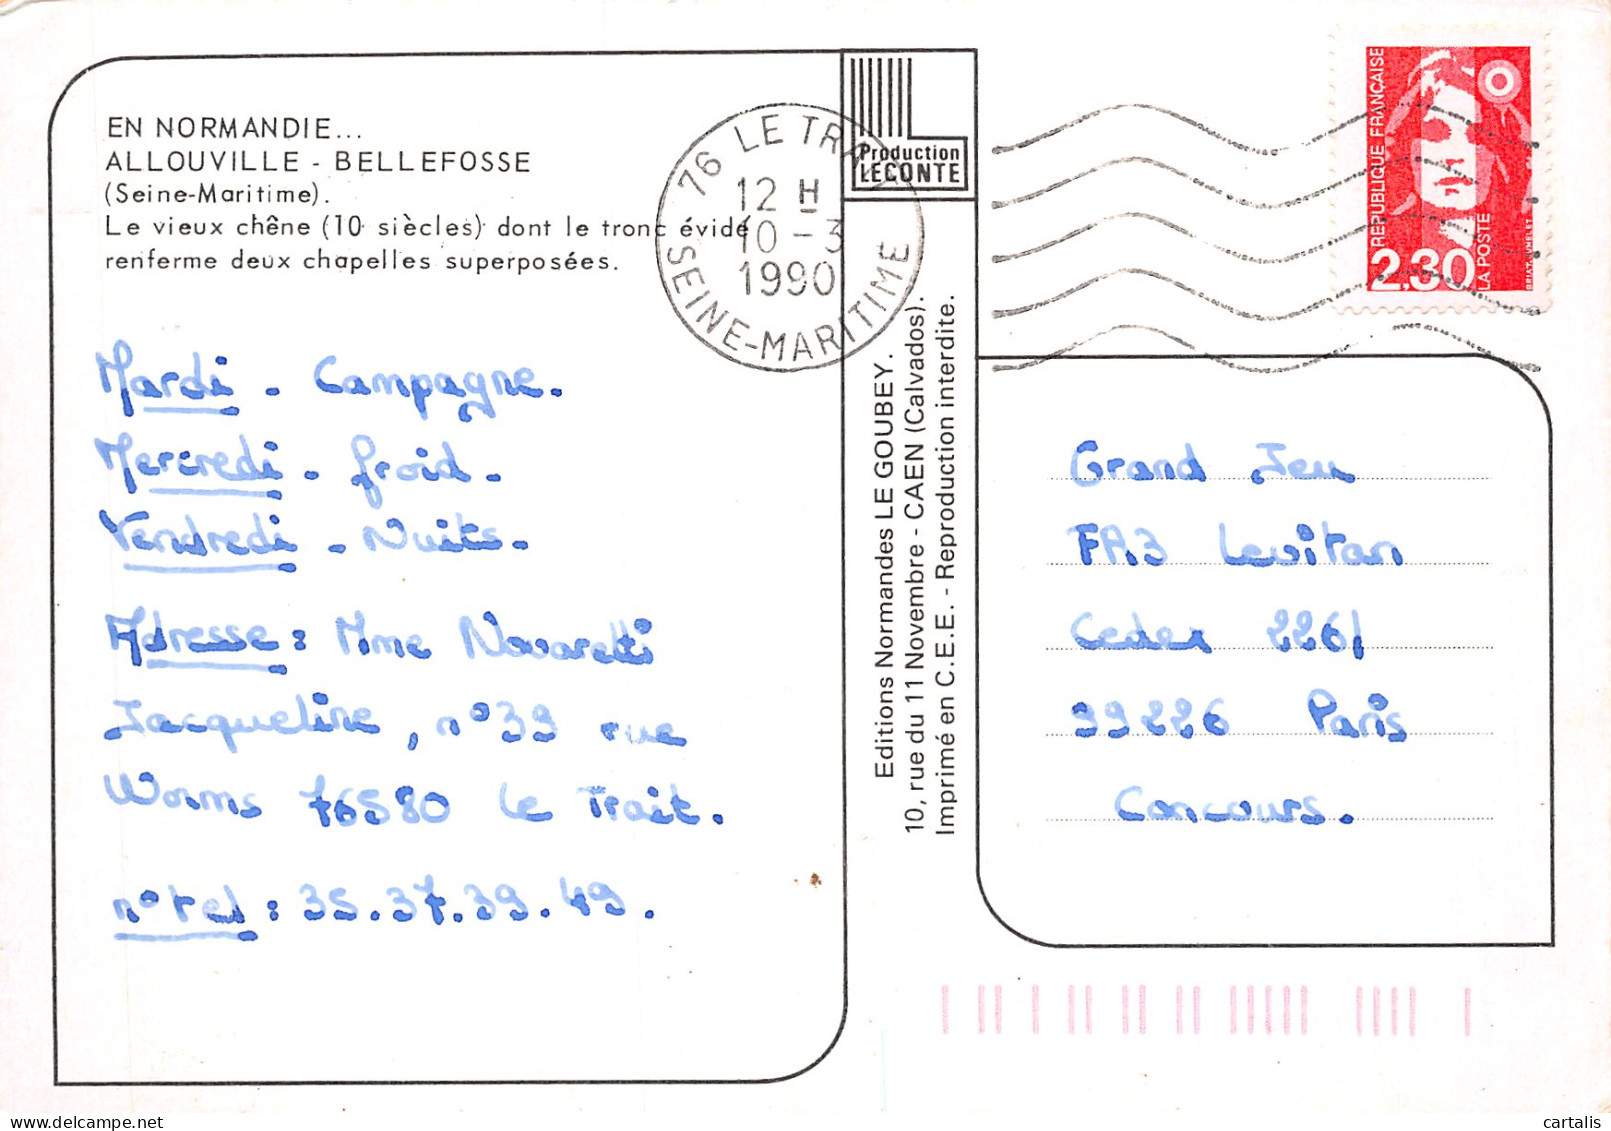 EN NORMANDIE...
ALLOUVILLE - BELLEFOSSE
(Seine-Maritime).
Le vieux chêne (10 siècles) dont le tronc évidé
renferme deux chapelles superposées.
76 LE TRAIT
12 H
10 - 3
1990
SEINE-MARITIME
Production
LECONTE
REPUBLIQUE FRANÇAISE
2,30
LA POSTE
BRIAT-JUMELET
Mardi - Campagne.
Mercredi - froid.
Vendredi - Nuits.
Adresse : Mme Navaretti
Jacqueline, n° 39 rue
Worms 76580 Le Trait.
n° tel : 35.37.39.49.
Editions Normandes LE GOUBEY.
10, rue du 11 Novembre - CAEN (Calvados).
Imprimé en C.E.E. - Reproduction interdite.
Grand Jeu
FR3 Levitan
Cedex 2261
99226 Paris
Concours.
cartalis